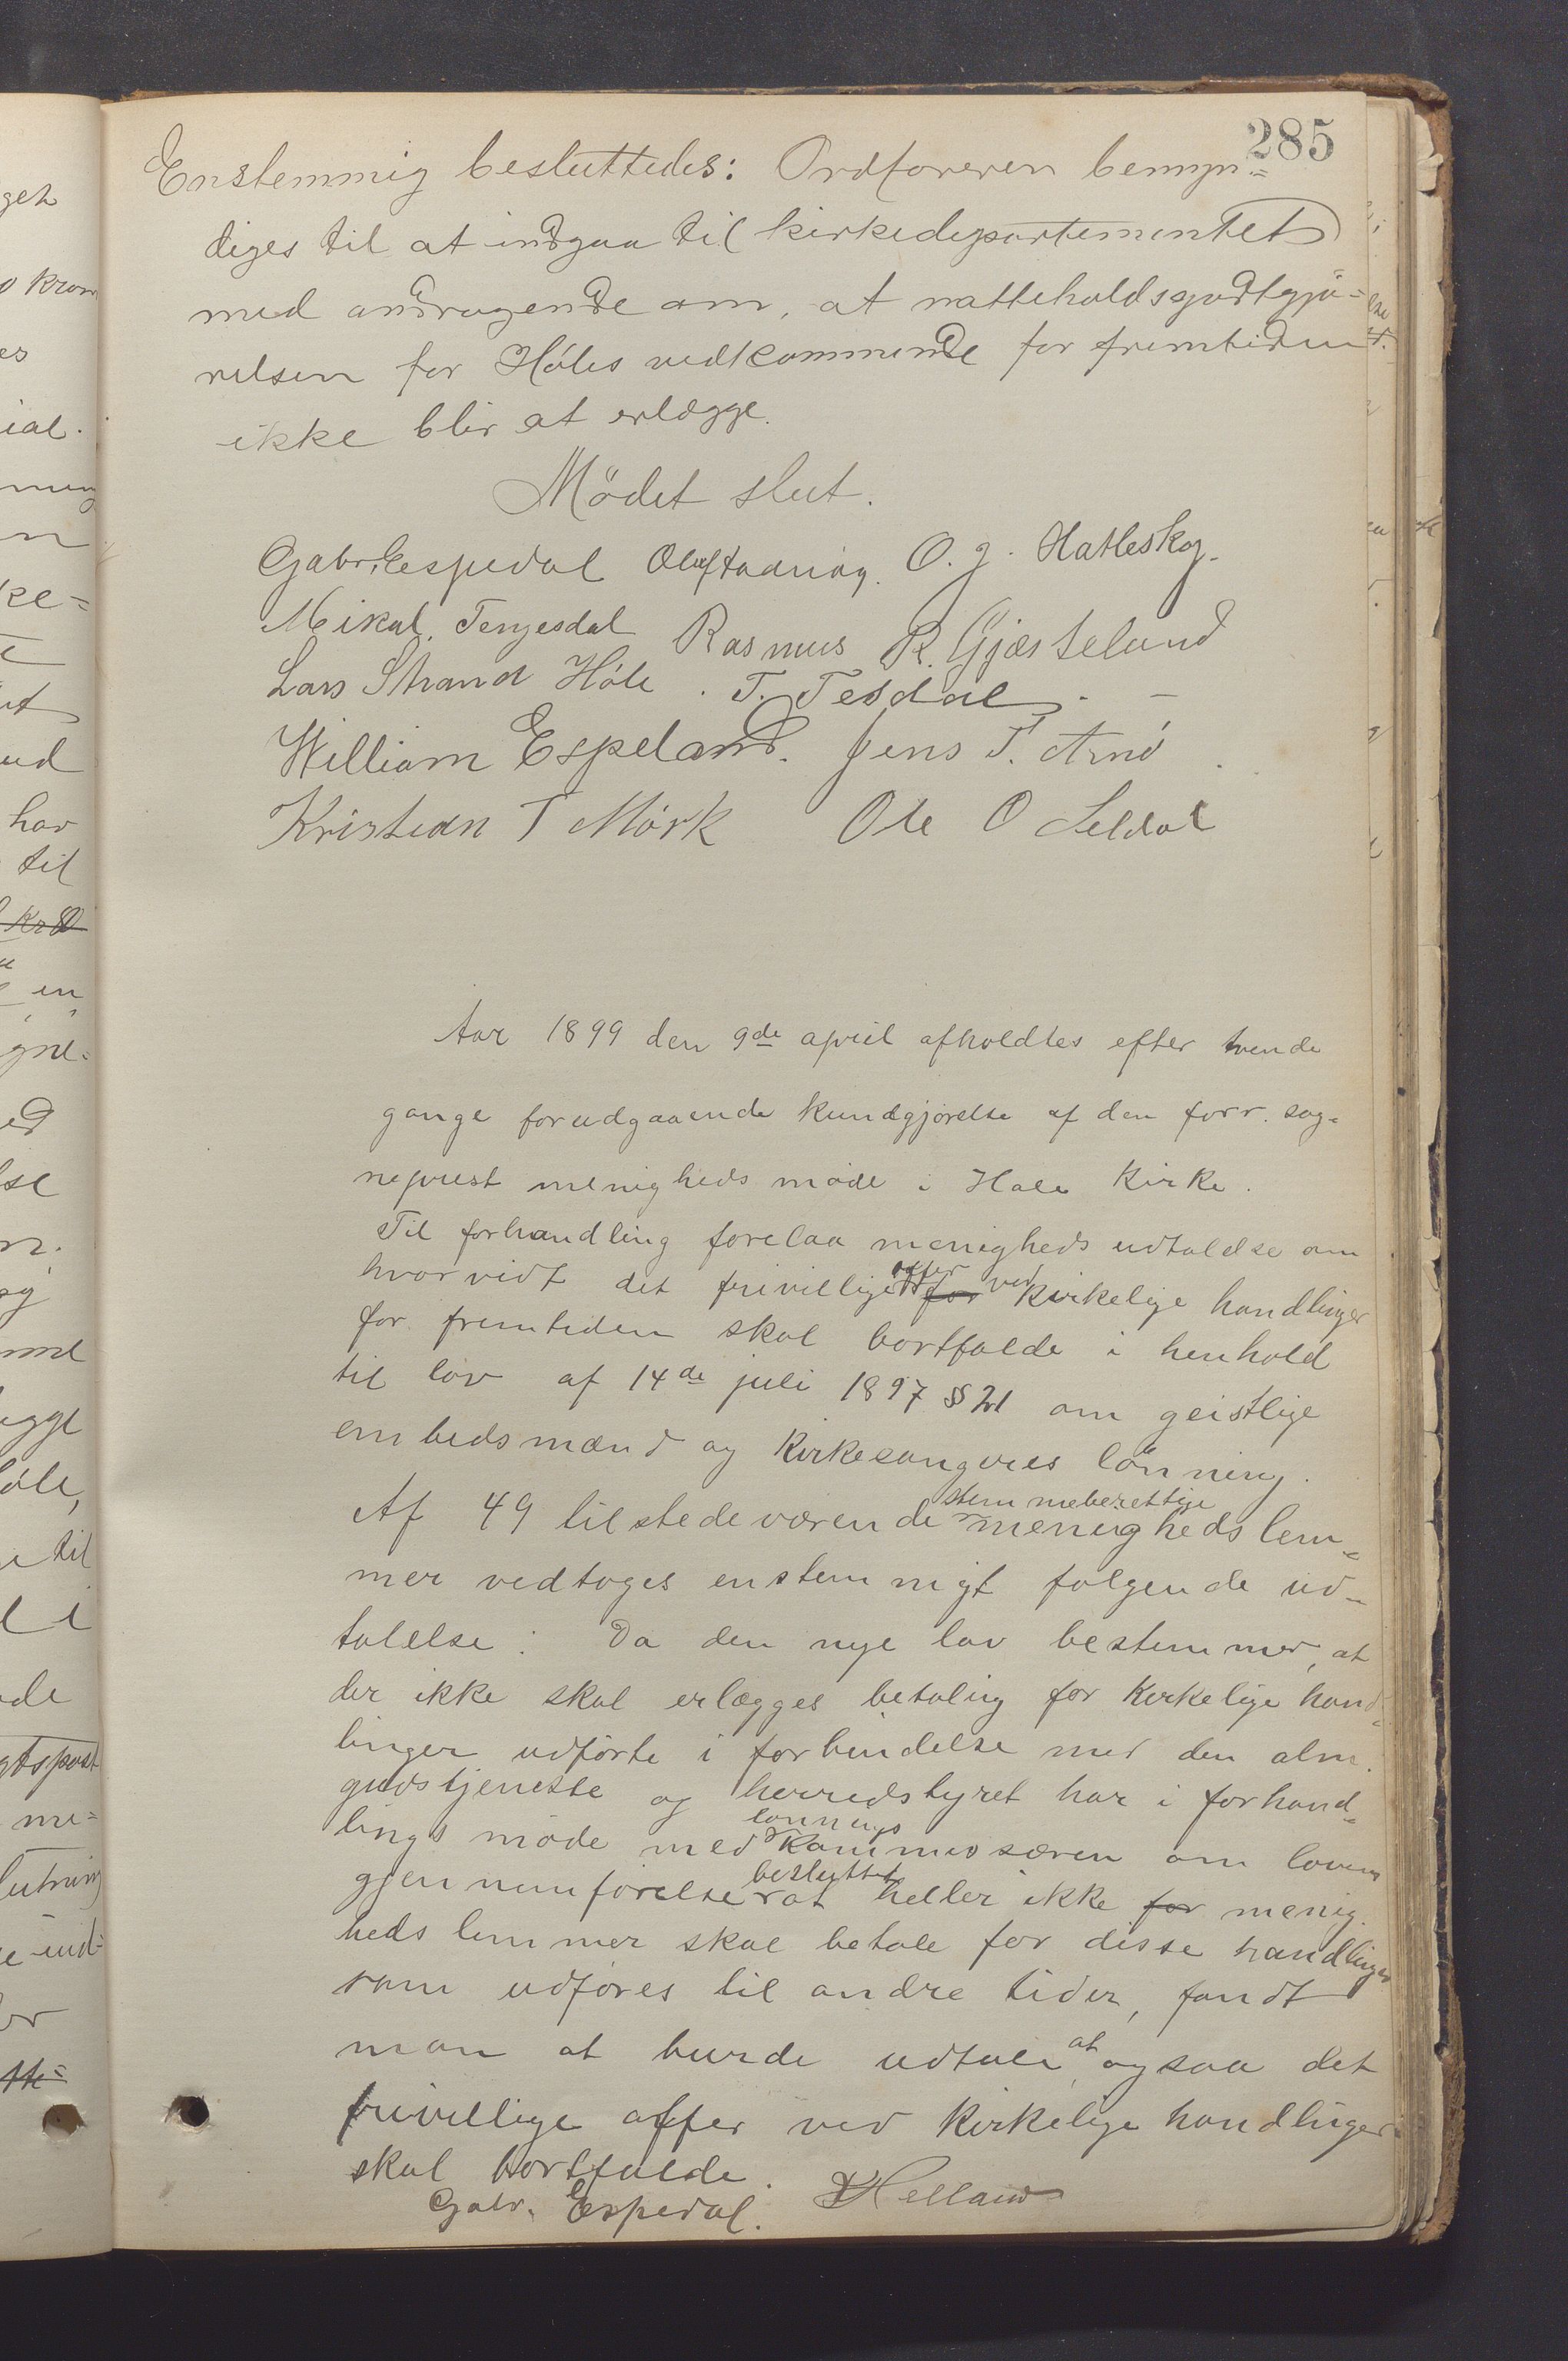 285
Enstemmig besluttedes: Ordføreren bemyn=
diges til at indgaa til kirkedepartementet
med andragende om, at natteholdsgodtgjö=
relsen for Höles vedkommende for fremtiden
ikke blir at erlægge.
Mödet slut.
Gabr. Espedal Oluf Aadnöy. O. G. Hatleskog.
Mikal Tengesdal Rasmus R. Gjæsteland
Lars Strand Høle. T. Tesdal.
William Espeland. Jens T. Ansø
Kristian T Mørk Ole O Seldal
Aar 1899 den 9de april afholdtes efter tvende
gange forudgaaende kundgjørelse af den forr. sog=
neprest menigheds møde i Høle Kirke.
Til forhandling forelaa menigheds udtalelse om
hvorvidt det frivillige offer for ved Kirkelige handlinger
for fremtiden skal bortfalde i henhold
til lov af 14de juli 1897 § 21 om geistlige
embedsmænd og Kirkesangeres lønning.
Af 49 tilstedeværende stemmeberettige menighedslem=
mer vedtoges enstemmigt følgende ud=
talelse: Da den nye lov bestemmer, at
der ikke skal erlægges betaling for Kirkelige hand=
linger udførte i forbindelse med den alm.
gudstjeneste og herredstyret har i forhand=
lings møde med lønnings Kommissæren om lovens
gjennemførelse besluttet at heller ikke for menig
heds lemmer skal betale for disse handlinger
som udføres til andre tider, fandt
man at burde udtale at ogsaa det
frivillige offer ved Kirkelige handlinger
skal bortfalde.
Gabr. Espedal. Helland